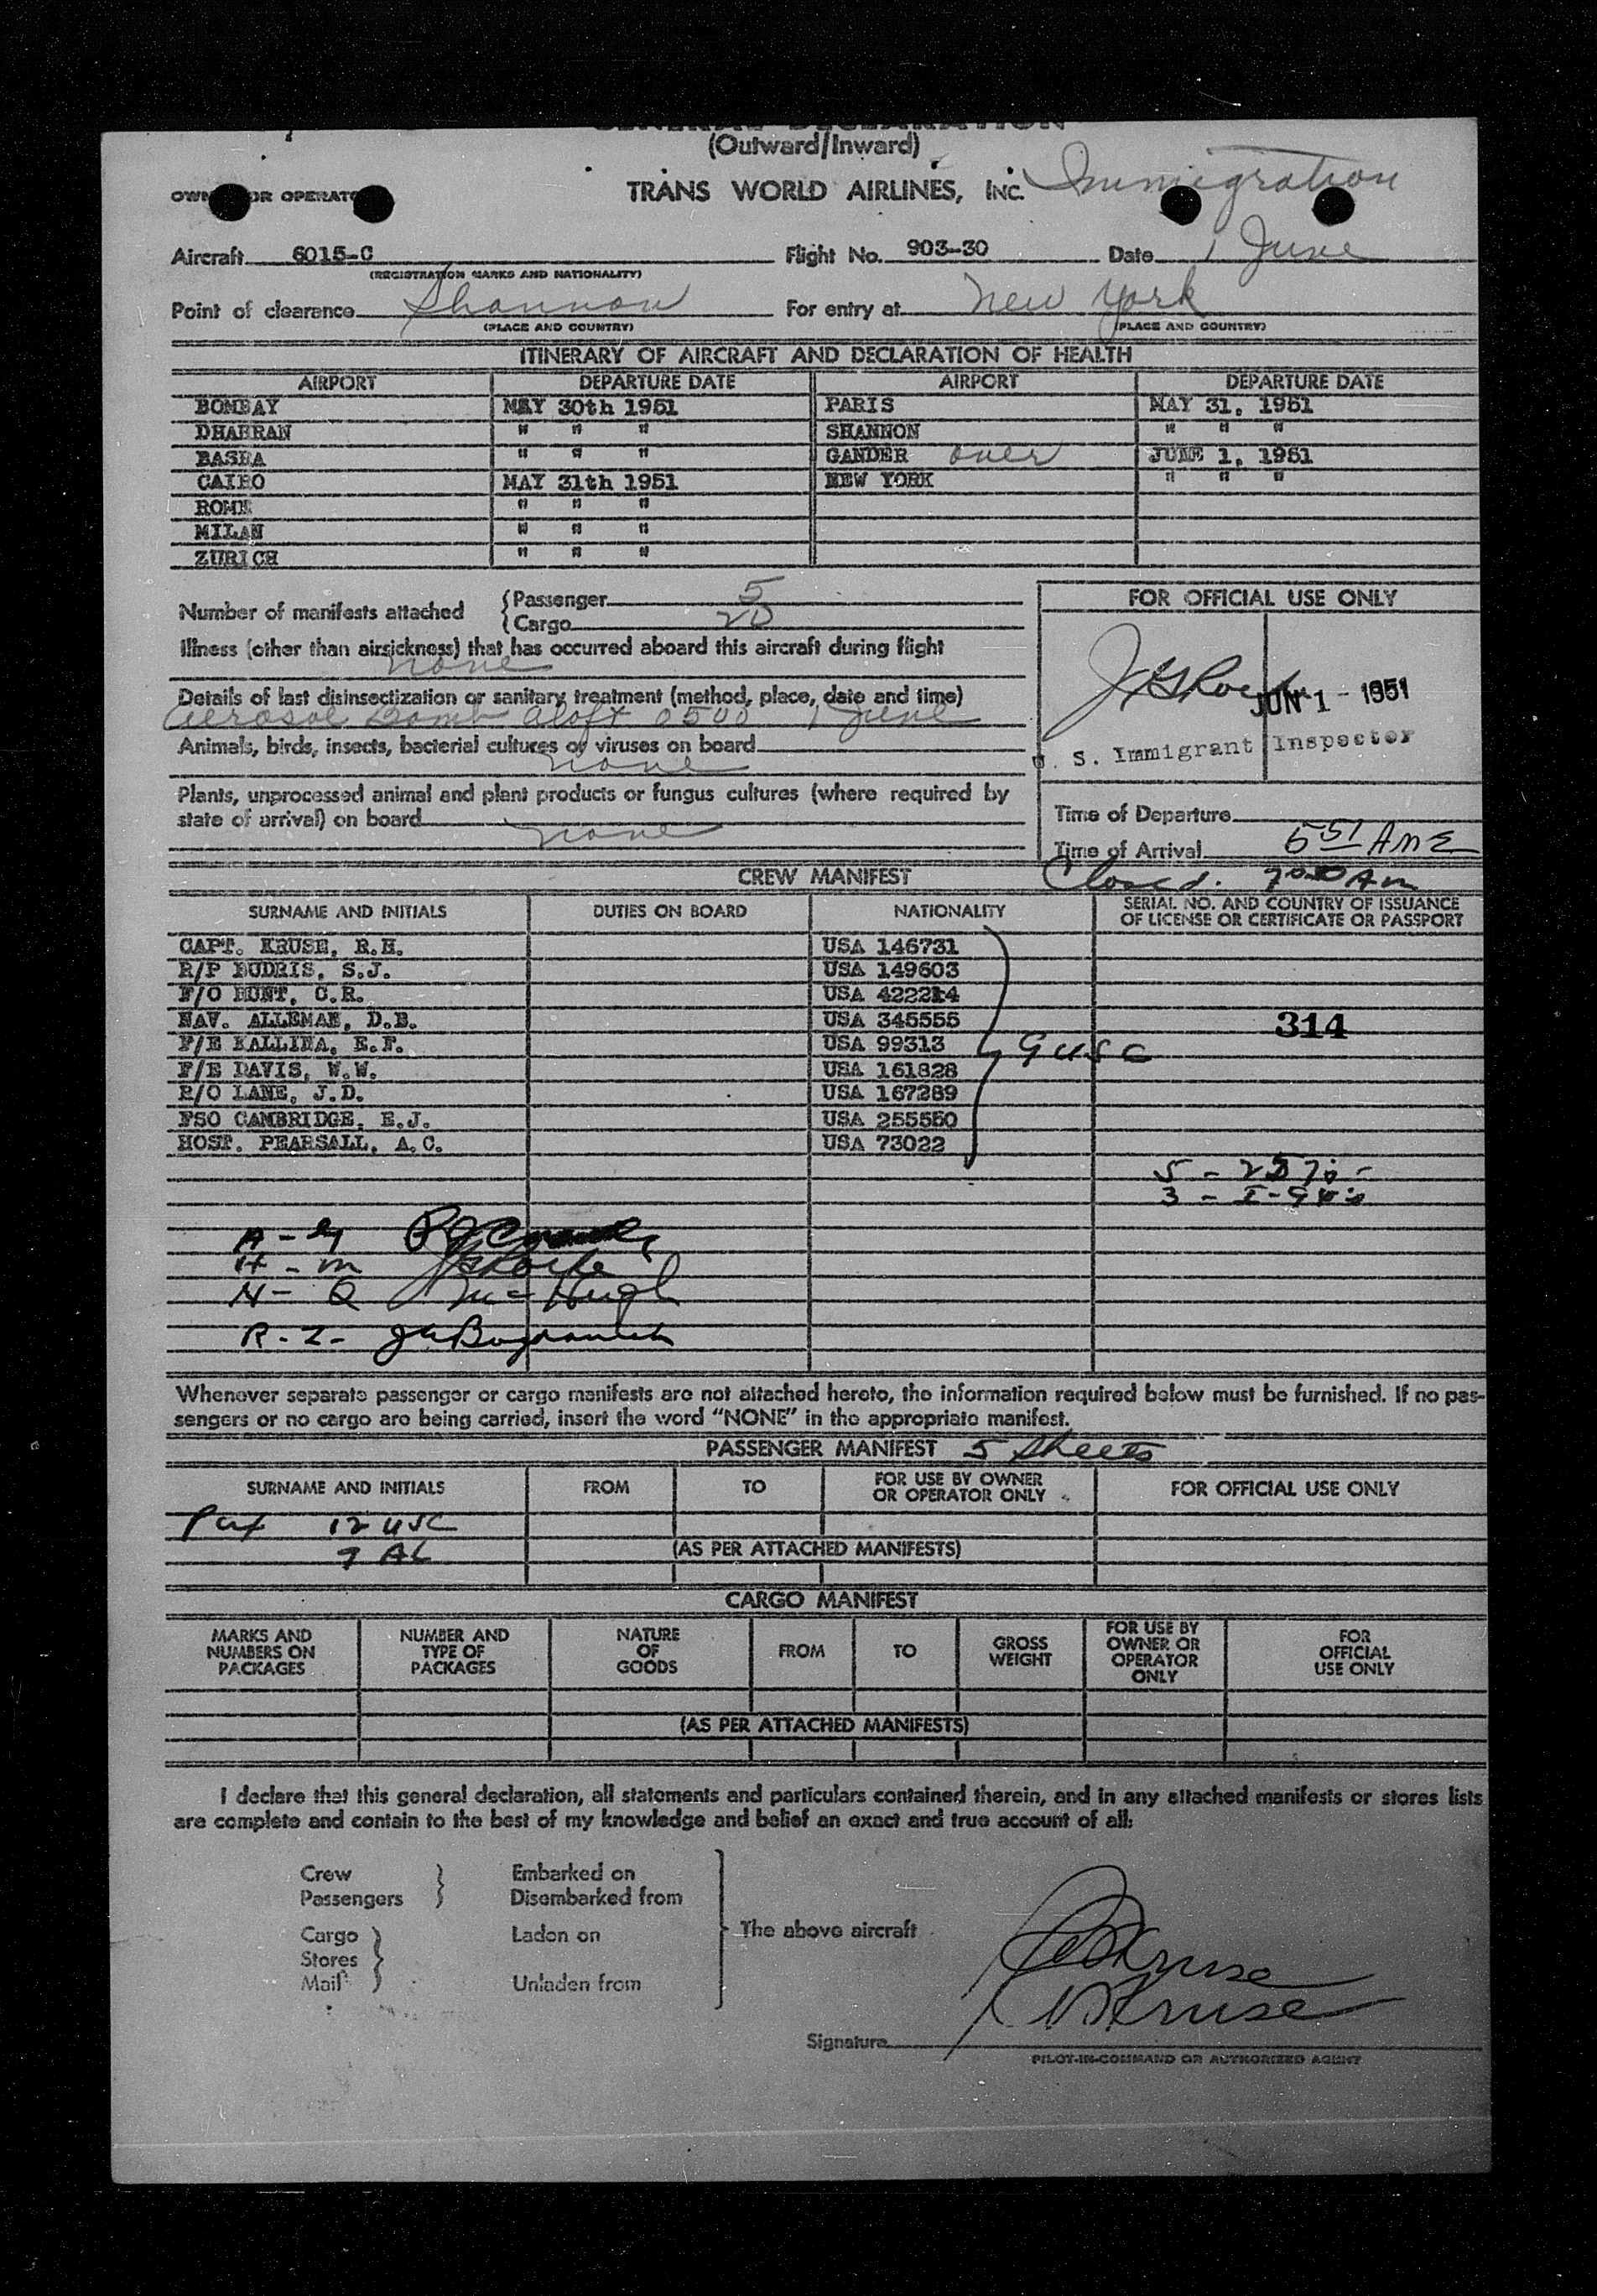 GENERAL DECLARATION
(Outward/Inward)
TRANS WORLD AIRLINES, INC. Immigration
OWNER OR OPERATOR
Aircraft 6015-C Flight No. 903-30 Date 1 June
(REGISTRATION MARKS AND NATIONALITY)
Point of clearance Shannon For entry at New York
(PLACE AND COUNTRY) (PLACE AND COUNTRY)
ITINERARY OF AIRCRAFT AND DECLARATION OF HEALTH
AIRPORT DEPARTURE DATE AIRPORT DEPARTURE DATE
BOMBAY MAY 30th 1951 PARIS MAY 31, 1951
DHAHRAN " " " SHANNON " " "
BASRA " " " GANDER over JUNE 1, 1951
CAIRO MAY 31th 1951 NEW YORK " " "
ROME " " "
MILAN " " "
ZURICH " " "
Number of manifests attached { Passenger 5
{ Cargo 20
FOR OFFICIAL USE ONLY
Illness (other than airsickness) that has occurred aboard this aircraft during flight
none
Details of last disinsectization or sanitary treatment (method, place, date and time)
Aerosol Bomb aloft 0500 1 June
JUN 1 - 1951
Animals, birds, insects, bacterial cultures or viruses on board
none
U. S. Immigrant Inspector
Plants, unprocessed animal and plant products or fungus cultures (where required by
state of arrival) on board none
Time of Departure
Time of Arrival 5 51 AM E
CREW MANIFEST Closed. AM
SURNAME AND INITIALS DUTIES ON BOARD NATIONALITY SERIAL NO. AND COUNTRY OF ISSUANCE
OF LICENSE OR CERTIFICATE OR PASSPORT
CAPT. KRUSE, R.H. USA 146731
R/P BUDRIS, S.J. USA 149603
F/O HUNT, C.R. USA 422214
NAV. ALLEMAN, D.B. USA 345555
314
F/E KALLINA, E.F. USA 99313 9 USC
F/E DAVIS, W.W. USA 161828
R/O LANE, J.D. USA 167289
FSO CAMBRIDGE, E.J. USA 255550
HOST. PEARSALL, A.C. USA 73022
A -
H - m
N - Q McHugh
R - I -
Whenever separate passenger or cargo manifests are not attached hereto, the information required below must be furnished. If no pas-
sengers or no cargo are being carried, insert the word "NONE" in the appropriate manifest.
PASSENGER MANIFEST 5 sheets
SURNAME AND INITIALS FROM TO FOR USE BY OWNER
OR OPERATOR ONLY FOR OFFICIAL USE ONLY
Pax 12 USC
7 AL (AS PER ATTACHED MANIFESTS)
CARGO MANIFEST
MARKS AND
NUMBERS ON
PACKAGES NUMBER AND
TYPE OF
PACKAGES NATURE
OF
GOODS FROM TO GROSS
WEIGHT FOR USE BY
OWNER OR
OPERATOR
ONLY FOR
OFFICIAL
USE ONLY
(AS PER ATTACHED MANIFESTS)
I declare that this general declaration, all statements and particulars contained therein, and in any attached manifests or stores lists
are complete and contain to the best of my knowledge and belief an exact and true account of all:
Crew Embarked on
Passengers Disembarked from
Cargo Laden on The above aircraft
Stores
Mail Unladen from
RHKruse
RHKruse
Signature
PILOT-IN-COMMAND OR AUTHORIZED AGENT